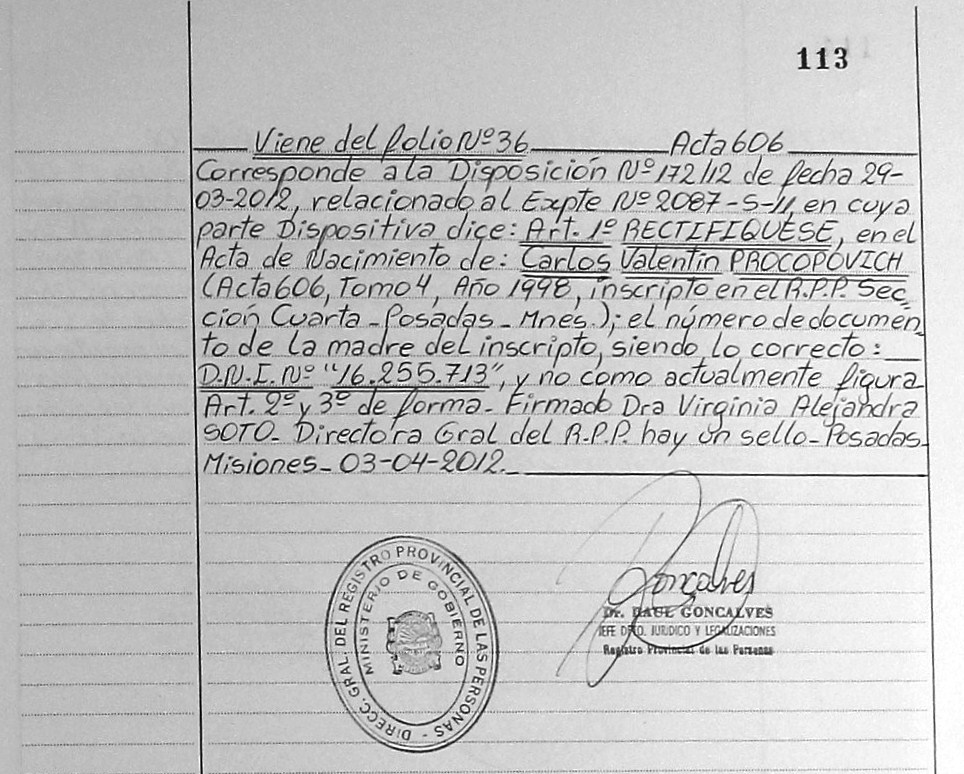 113
Viene del folio Nº 36 Acta 606
Corresponde a la Disposición Nº 172/12 de fecha 29-
03-2012, relacionado al Expte Nº 2087-S-11, en cuya
parte Dispositiva dice: Art. 1º RECTIFIQUESE, en el
Acta de Nacimiento de: Carlos Valentín PROCOPOVICH
(Acta 606, Tomo 4, Año 1998, inscripto en el R.P.P. Sec
ción Cuarta - Posadas - Mnes.); el número de documen
to de la madre del inscripto, siendo lo correcto:
D.N.I. Nº "16.255.713", y no como actualmente figura
Art. 2º y 3º de forma - Firmado Dra Virginia Alejandra
SOTO - Directora Gral del R.P.P. hay un sello - Posadas
Misiones - 03-04-2012.
DIRECC. GRAL. DEL REGISTRO PROVINCIAL DE LAS PERSONAS -
MINISTERIO DE GOBIERNO
Goncalves
Dr. RAUL GONCALVES
JEFE DPTO. JURIDICO Y LEGALIZACIONES
Registro Provincial de las Personas